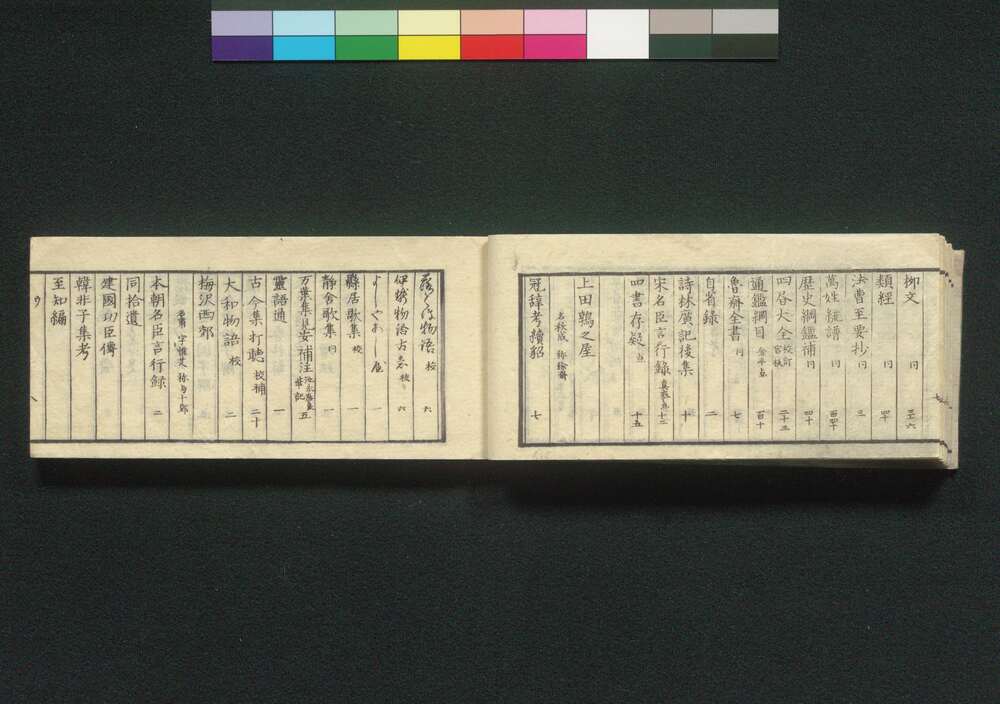 柳文 同
類經 同 四十
法曹至要抄 同 三
萬姓統譜 同 百四十
歴史綱鑑補 同 四十
四書大全 校訂 二十三
通鑑綱目 百十
魯齋全書 同 七
自省録 二
詩林廣記後集 十
宋名臣言行録 十二
四書存疑 点 十五
上田鶉之屋
名秋成 称餘齋
冠辞考續貂 七
物語 校 六
伊勢物語古意 校 六
よしやあしや 一
縣居歌集 校 一
静舍歌集 同 一
万葉集見安補注 五
靈語通 一
古今集打聴 校補 二十
大和物語 校 二
梅沢西郊
字惟文 称与十郎
本朝名臣言行録 二
同拾遺
建國功臣傳
韓非子集考
至知編